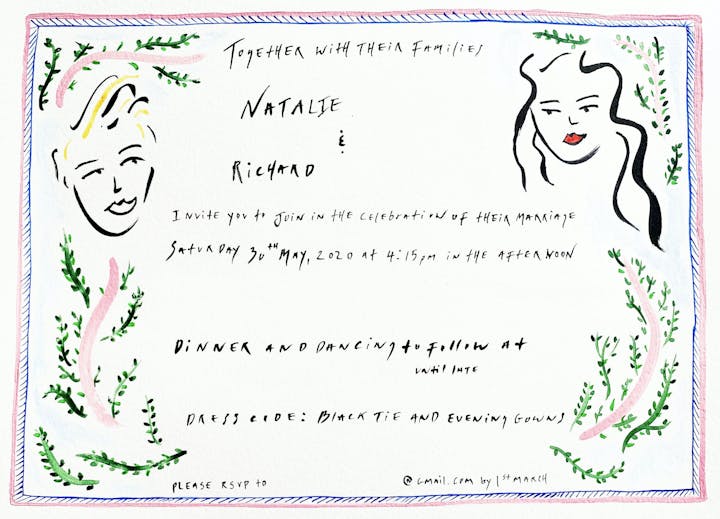 TOGETHER WITH THEIR FAMILIES
NATALIE
&
RICHARD
INVITE YOU TO JOIN IN THE CELEBRATION OF THEIR MARRIAGE
SATURDAY 30TH MAY, 2020 AT 4:15pm IN THE AFTERNOON
DINNER AND DANCING to Follow At
until late
DRESS CODE: BLACK TIE AND EVENING GOWNS
PLEASE RSVP to @GMAIL.COM by 1st MARCH